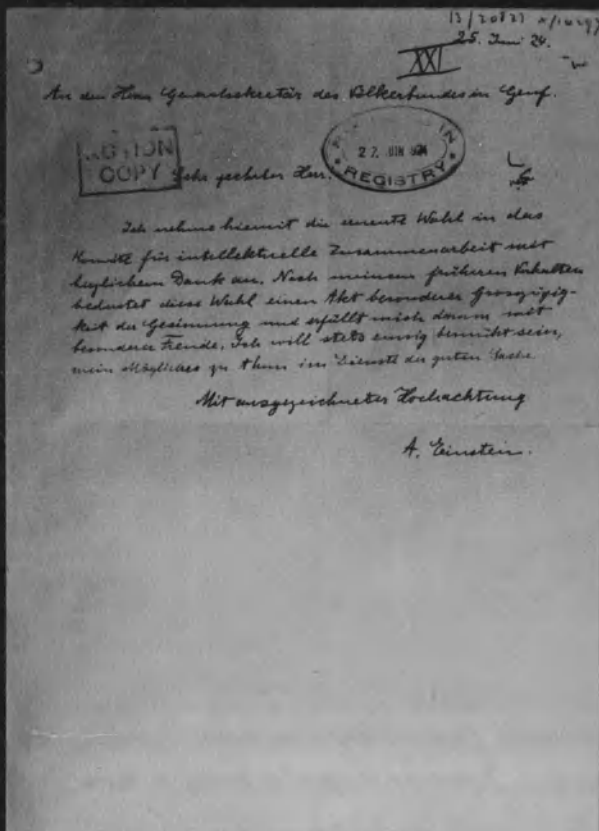 13/20823
25. Juni 24.
XXI
An den Herrn Generalsekretär des Völkerbundes in Genf.
ACTION
COPY
27. JUN 1924
REGISTRY
Sehr geehrter Herr.
Ich nehme hiemit die erneute Wahl in das
Komité für intellektuelle Zusammenarbeit mit
herzlichem Dank an. Nach meinem früheren Verhalten
bedeutet diese Wahl einen Akt besonderer Grosszügig-
keit der Gesinnung und erfüllt mich darum mit
besonderer Freude. Ich will stets eifrig bemüht sein,
mein Mögliches zu thun im Dienste der guten Sache
Mit ausgezeichneter Hochachtung
A. Einstein.